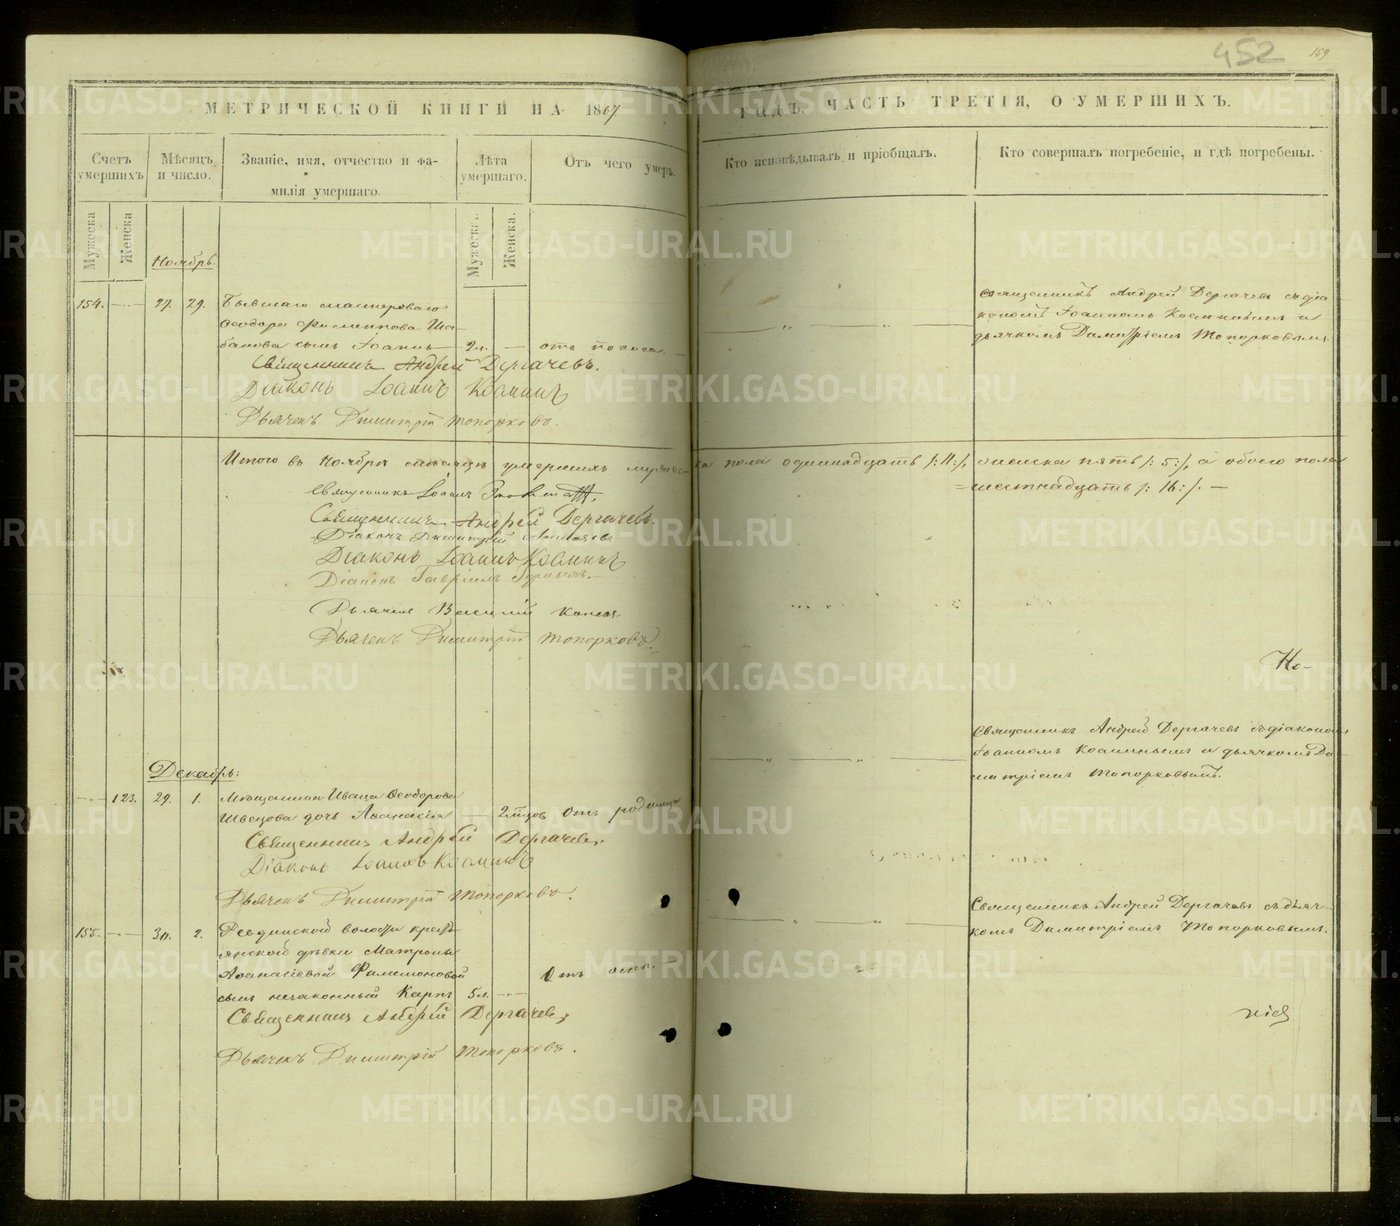 452
159
МЕТРИЧЕСКОЙ КНИГИ НА 1867
ГОДЪ, ЧАСТЬ ТРЕТІЯ, О УМЕРШИХЪ.
Счетъ умершихъ
Мѣсяцъ и число.
Званіе, имя, отчество и фамилія умершаго.
Лѣта умершаго.
Отъ чего умеръ.
Кто исповѣдывалъ и пріобщалъ.
Кто совершалъ погребеніе, и гдѣ погребены.
Мужеска
Женска
Мужеска.
Женска.
Ноябрь.
154. 27. 29. Бывшаго мастероваго
Ѳеодора Филиппова
сынъ Іоаннъ 2 л. отъ поноса.
Священникъ Андрей Дергачевъ съ діа-
кономъ Іоанномъ Косминымъ и
дьячкомъ Димитріемъ Топорковымъ
Священникъ Андрей Дергачевъ.
Діаконъ Іоаннъ Косминъ
Дьячекъ Димитрій Топорковъ.
Итого въ Ноябрѣ мѣсяцѣ умершихъ мужеска пола одиннадцать /: 11 :/, женска пять /: 5 :/, а обоего пола
шестнадцать /: 16 :/. —
Священникъ Іоаннъ
Священникъ Андрей Дергачевъ.
Діаконъ Димитрій
Діаконъ Іоаннъ Косминъ
Діаконъ Гавріилъ
Дьячекъ Василій
Дьячекъ Димитрій Топорковъ.
Но-
Декабрь:
123. 29. 1. Мѣщанина Ивана Ѳеодорова
Швецова дочь Аѳанасія 2 мѣс. Отъ родимца
Священникъ Андрей Дергачевъ съ діакономъ
Іоанномъ Косминымъ и дьячкомъ Ди-
митріемъ Топорковымъ.
Священникъ Андрей Дергачевъ,
Діаконъ Іоаннъ Косминъ
Дьячекъ Димитрій Топорковъ.
155. 30. 2. волости кресть-
янской дѣвки Матроны
Аѳанасіевой Филимоновой
сынъ незаконный Карпъ 5 л. Отъ оспы.
Священникъ Андрей Дергачевъ съ дьяч-
комъ Димитріемъ Топорковымъ.
Священникъ Андрей Дергачевъ,
Дьячекъ Димитрій Топорковъ.
METRIKI.GASO-URAL.RU